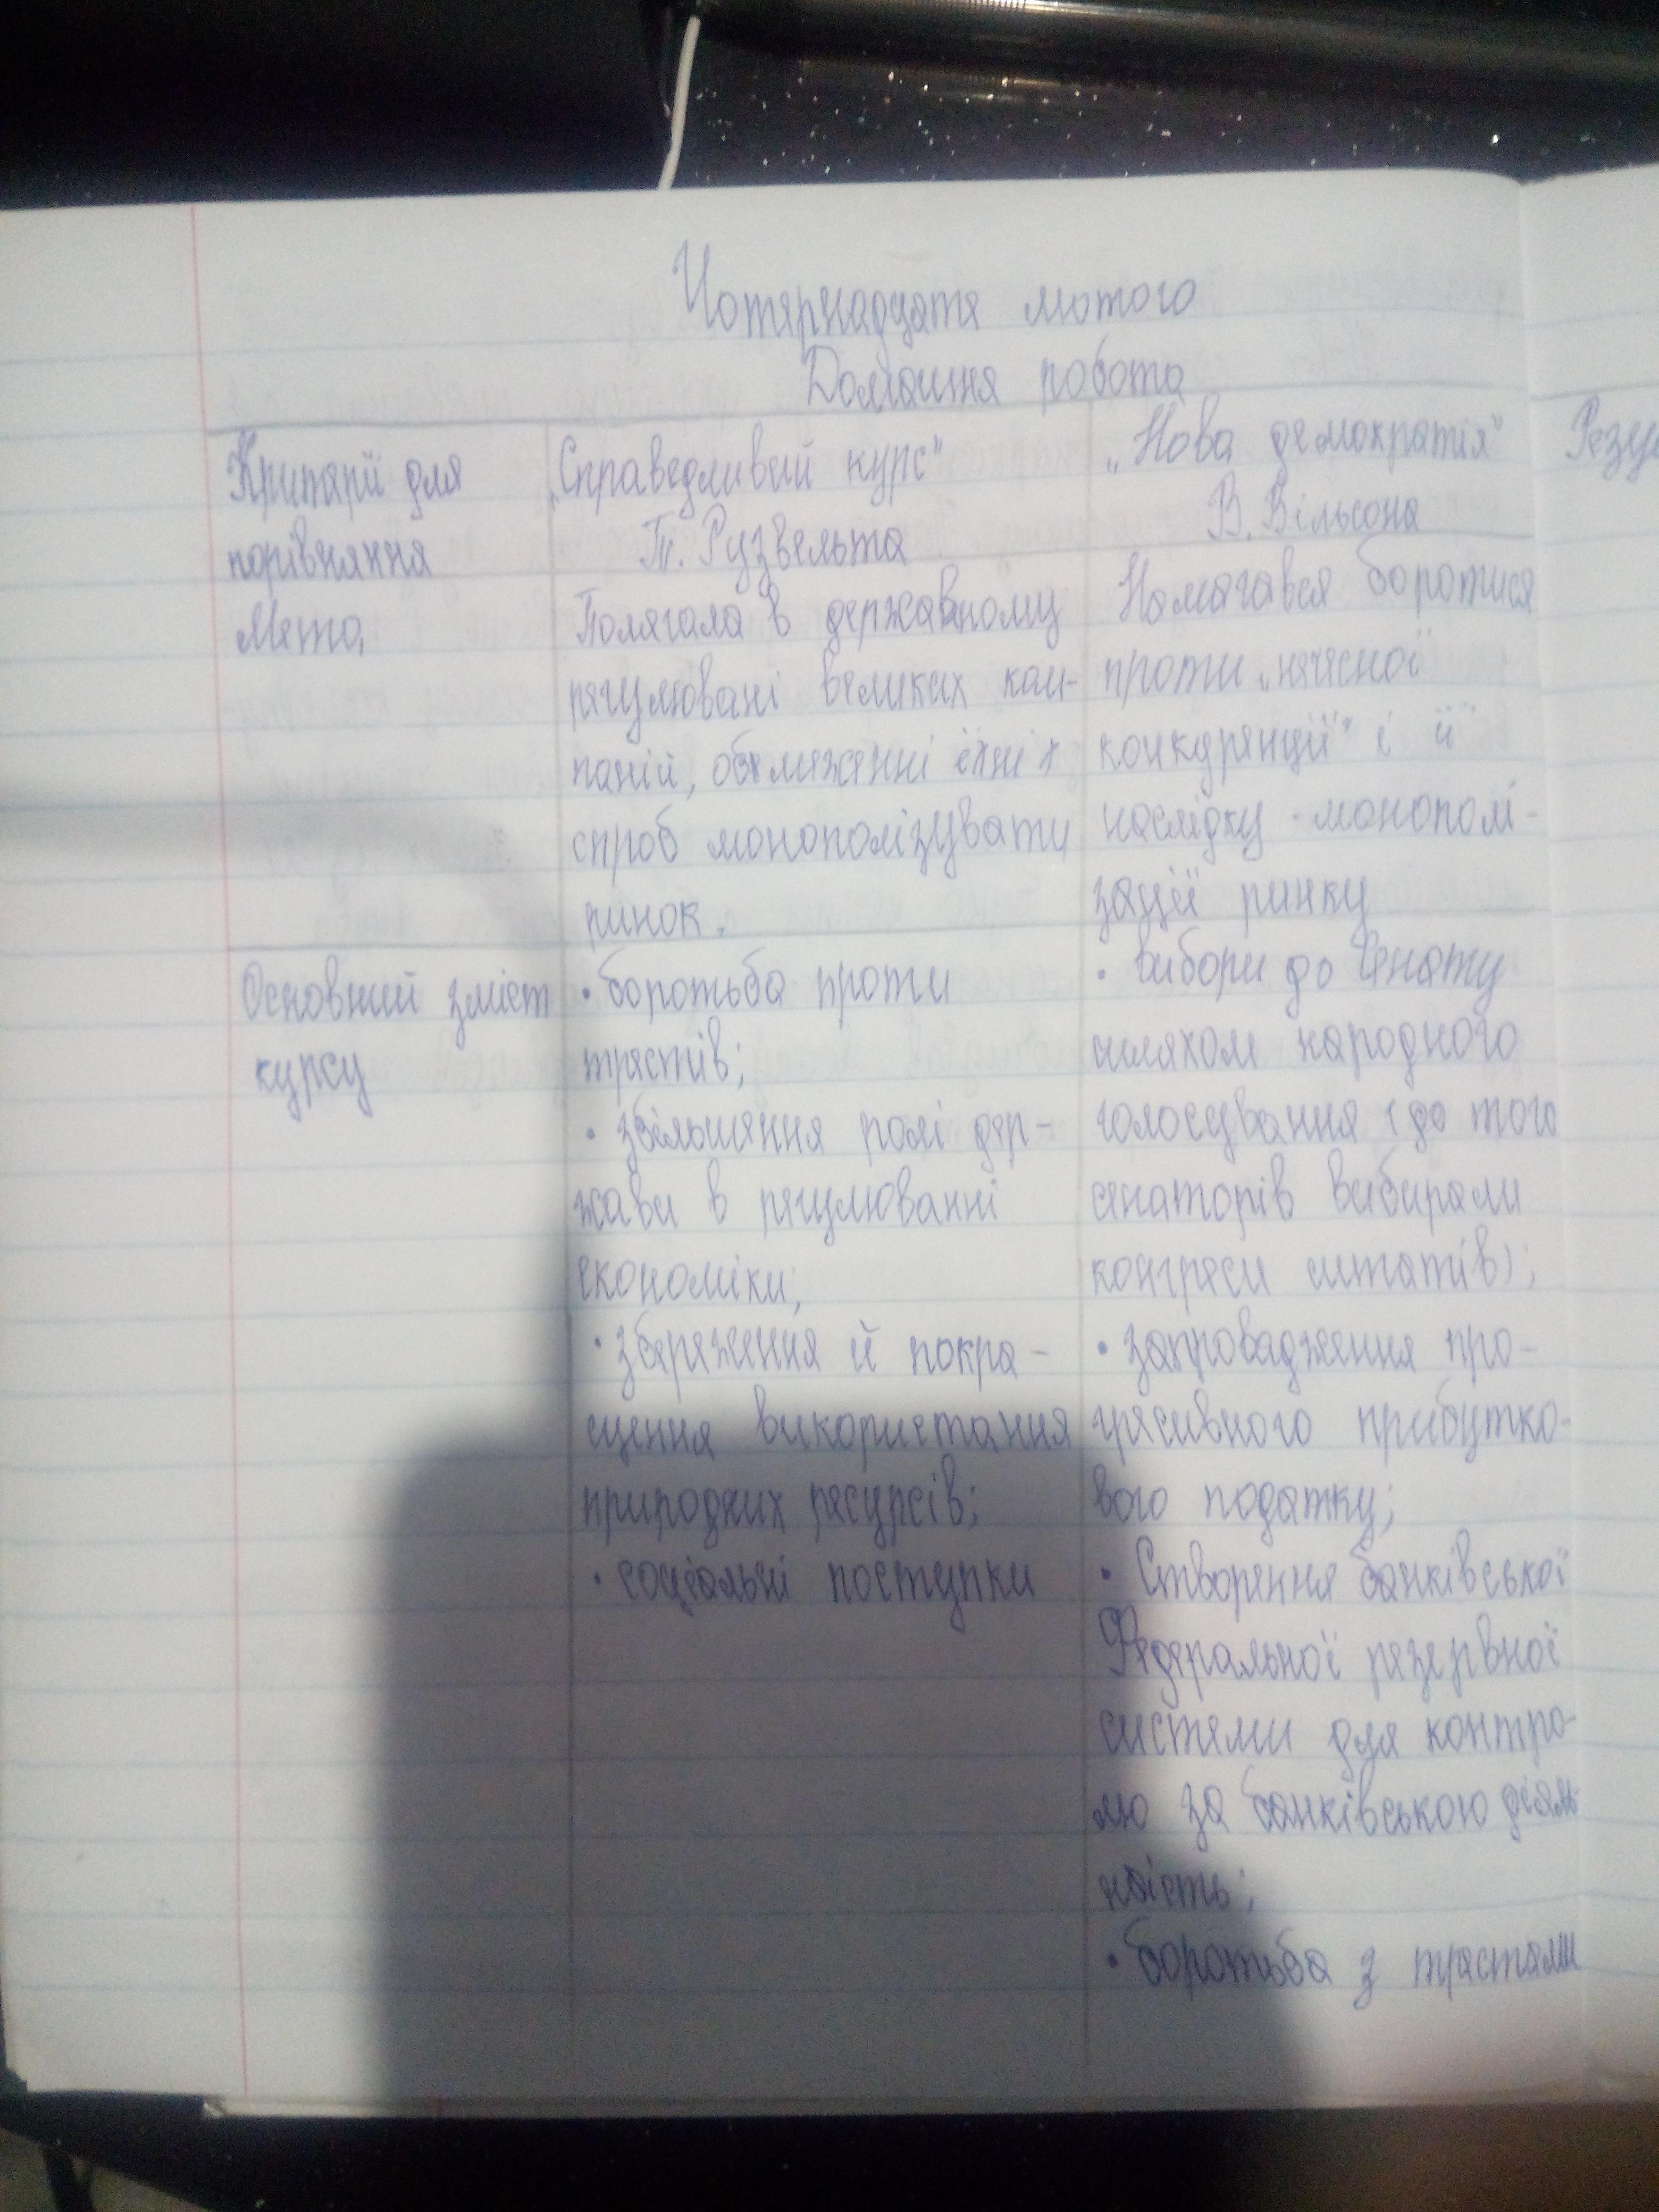 Чотирнадцяте лютого
Домашня робота
Критерії для
порівняння
„Справедливий курс"
Т. Рузвельта
„Нова демократія"
В. Вільсона
Резу
Мета
Полягала в державному
регулювані великих ком-
паній, обмеженні їхніх
спроб монополізувати
ринок.
Намагався боротися
проти „нечесної
конкуренції" і її
наслідку - монополі-
зації ринку
Основний зміст
курсу
• боротьба проти
трестів;
• збільшення ролі дер-
жави в регулюванні
економіки;
• збереження й покра-
щення використання
природних ресурсів;
• соціальні поступки
• вибори до Сенату
шляхом народного
голосування (до того
сенаторів вибирали
конгреси штатів);
• запровадження про-
гресивного прибутко-
вого податку;
• Створення банківської
Федеральної резервної
системи для контро-
лю за банківською діяль
ність;
• боротьба з трестами